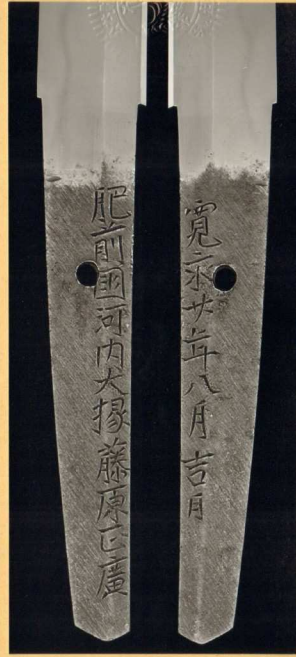 肥前國河内大掾藤原正廣
寛永廿年八月吉日